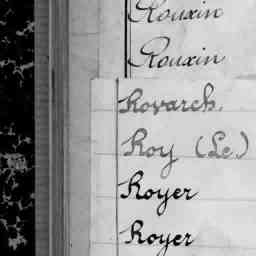 Rouxin
Rouxin
Rovarch.
Roy (Le)
Royer
Royer